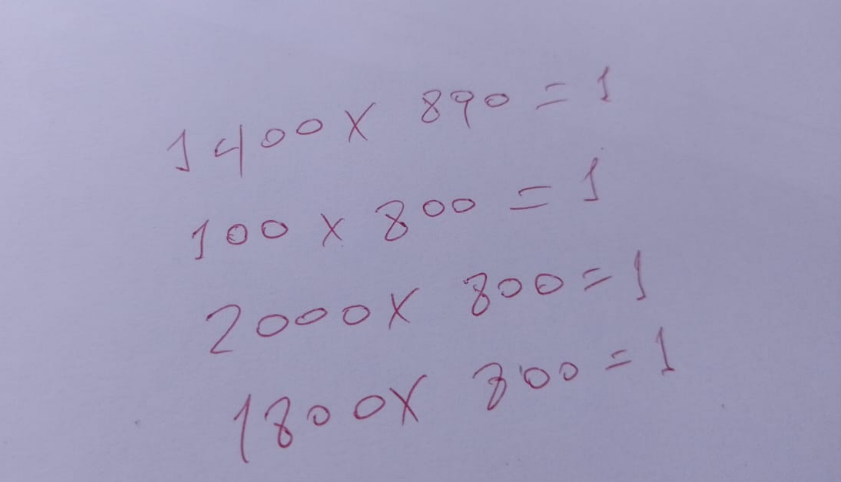 1400 X 890 = 1
100 x 800 = 1
2000 X 800 = 1
1800 X 800 = 1